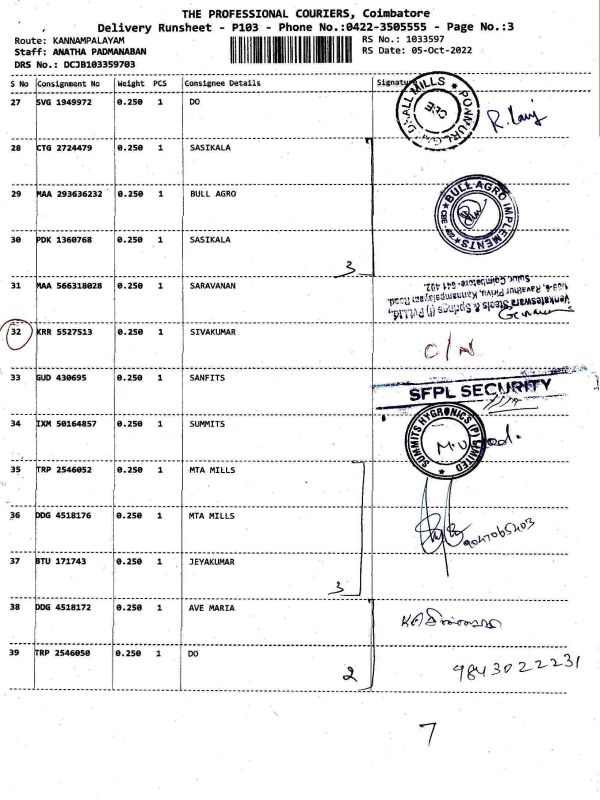 THE PROFESSIONAL COURIERS, Coimbatore
Delivery Runsheet - P103 - Phone No.:0422-3505555 - Page No.:3
Route: KANNAMPALAYAM
RS No.: 1033597
Staff: ANATHA PADMANABAN
RS Date: 05-Oct-2022
DRS No.: DCJB103359703
S No Consignment No Weight PCS Consignee Details Signature
27 SVG 1949972 0.250 1 DO
28 CTG 2724479 0.250 1 SASIKALA
29 MAA 293636232 0.250 1 BULL AGRO
BULL AGRO IMPLEMENTS
30 PDK 1360768 0.250 1 SASIKALA
3
31 MAA 566318028 0.250 1 SARAVANAN
Venkateswara Steels & Springs (I) Pvt Ltd.,
Ravathur Pirivu, Kannampalayam Road,
Sulur, Coimbatore- 641 402
32 KRR 5527513 0.250 1 SIVAKUMAR
33 GUD 430695 0.250 1 SANFITS
SFPL SECURITY
34 IXM 50164857 0.250 1 SUMMITS
SUMMITS HYGRONICS (P) LIMITED
35 TRP 2546052 0.250 1 MTA MILLS
36 DDG 4518176 0.250 1 MTA MILLS
37 BTU 171743 0.250 1 JEYAKUMAR
3
38 DDG 4518172 0.250 1 AVE MARIA
39 TRP 2546050 0.250 1 DO
2
9843022231
7